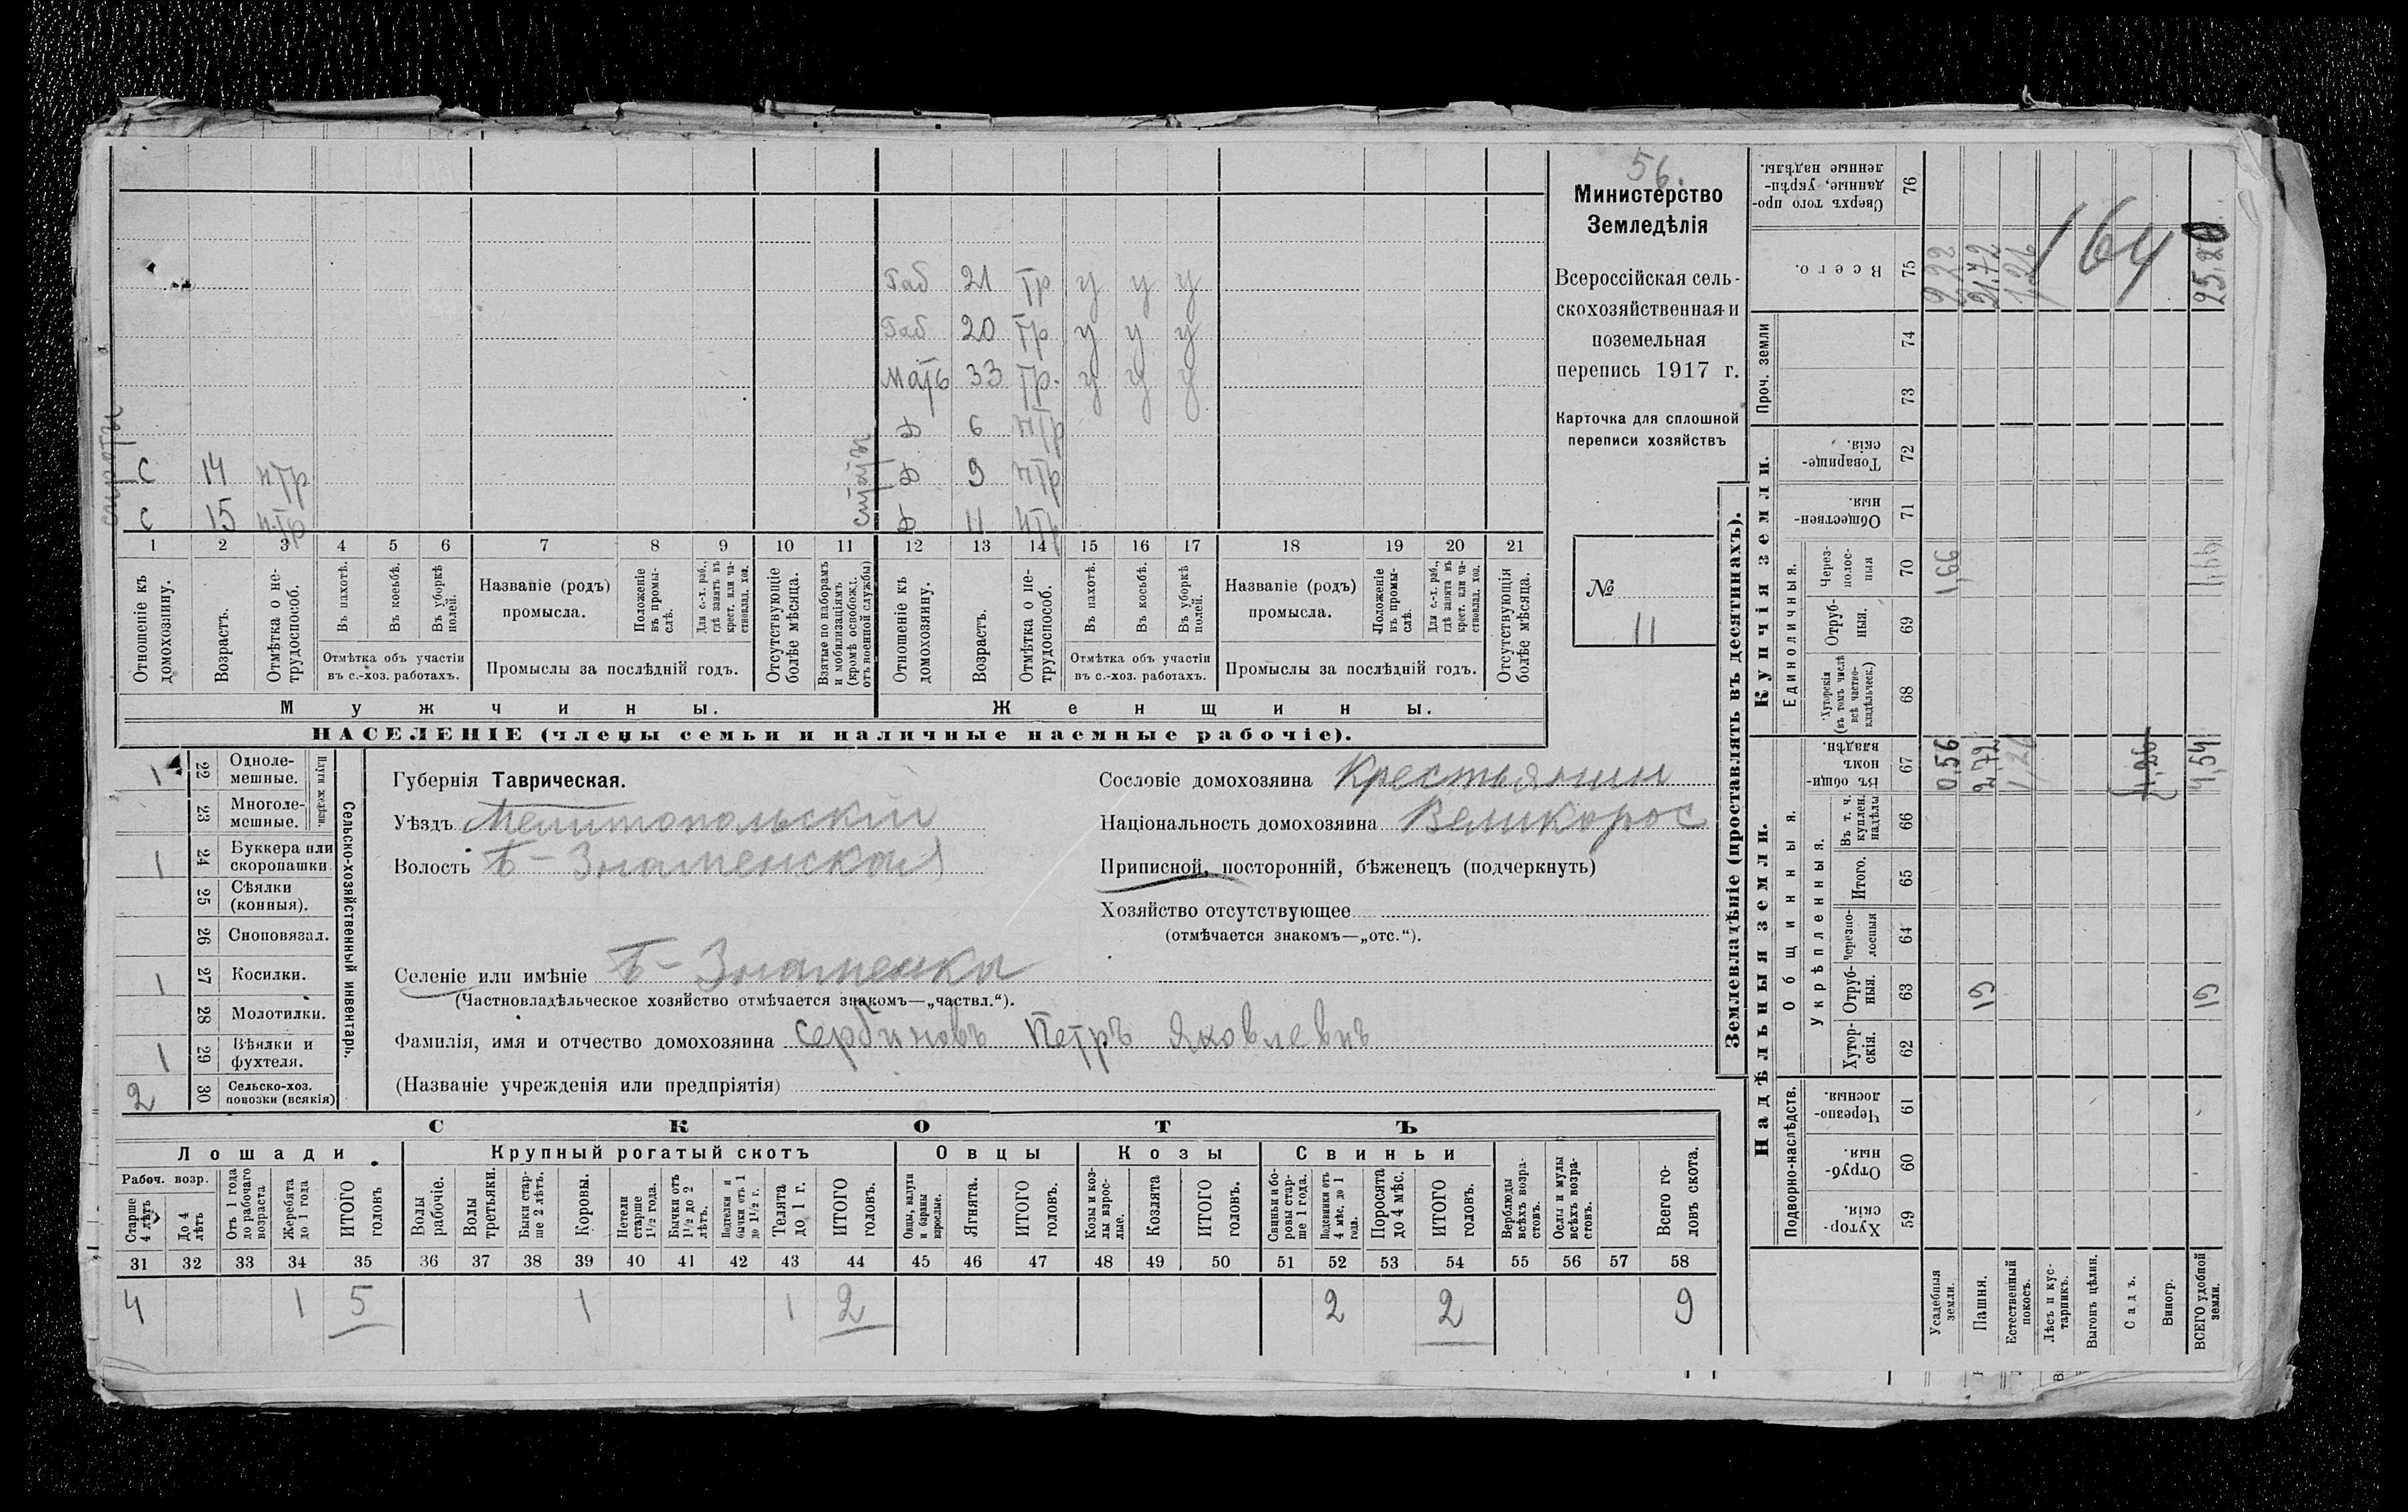 56.
Министерство
Земледѣлія
Всероссійская сель-
скохозяйственная и
поземельная
перепись 1917 г.
Карточка для сплошной
переписи хозяйствъ
№
11
Раб 21 тр у у у
Раб 20 тр у у у
мать 33 тр. у у у
Д 6 нтр
С 14 нтр Д 9 нтр
С 15 н.тр Д 11 нтр
1 2 3 4 5 6 7 8 9 10 11 12 13 14 15 16 17 18 19 20 21
Отношеніе къ домохозяину.
Возрастъ.
Отмѣтка о не-трудоспособ.
Въ пахотѣ.
Въ косьбѣ.
Въ уборкѣ полей.
Отмѣтка объ участіи въ с.-хоз. работахъ.
Названіе (родъ) промысла.
Положеніе въ промы-слѣ.
Для с.-х. раб., гдѣ занятъ въ крест. или ча-стновлад. хоз.
Промыслы за послѣдній годъ.
Отсутствующіе болѣе мѣсяца.
Взятые по наборамъ и мобилизаціямъ (кромѣ освобожд. отъ военной службы)
Отношеніе къ домохозяину.
Возрастъ.
Отмѣтка о не-трудоспособ.
Въ пахотѣ.
Въ косьбѣ.
Въ уборкѣ полей.
Отмѣтка объ участіи въ с.-хоз. работахъ.
Названіе (родъ) промысла.
Положеніе въ промы-слѣ.
Для с.-х. раб., гдѣ занята въ крест. или ча-стновлад. хоз.
Промыслы за послѣдній годъ.
Отсутствующія болѣе мѣсяца.
Мужчины. Женщины.
НАСЕЛЕНІЕ (члены семьи и наличные наемные рабочіе).
1 22 Одноле-мешные.
23 Многоле-мешные.
Плуги желѣзн.
1 24 Буккера или скоропашки
25 Сѣялки (конныя).
26 Сноповязал.
1 27 Косилки.
28 Молотилки.
1 29 Вѣялки и фухтеля.
2 30 Сельско-хоз. повозки (всякія)
Сельско-хозяйственный инвентарь.
Губернія Таврическая.
Уѣздъ Мелитопольскій
Волость Б-Знаменская
Сословіе домохозяина Крестьянин
Національность домохозяина Великорос
Приписной, посторонній, бѣженецъ (подчеркнуть)
Хозяйство отсутствующее
(отмѣчается знакомъ—„отс.“).
Селеніе или имѣніе Б-Знаменка
(Частновладѣльческое хозяйство отмѣчается знакомъ—„частвл.“).
Фамилія, имя и отчество домохозяина Сербиновъ Петръ Яковлевичъ
(Названіе учрежденія или предпріятія)
СКОТЪ
Лошади. Крупный рогатый скотъ Овцы Козы Свиньи
Рабоч. возр.
Старше 4 лѣтъ
До 4 лѣтъ
Отъ 1 года до рабочаго возраста
Жеребята до 1 года
ИТОГО головъ
Волы рабочіе.
Волы третьяки.
Быки стар-ше 2 лѣтъ.
Коровы.
Нетели старше 1½ года.
Бычки отъ 1½ до 2 лѣтъ.
Подтелки и бычки отъ 1 до 1½ г.
Телята до 1 г.
ИТОГО головъ.
Овцы, валухи и бараны взрослые.
Ягнята.
ИТОГО головъ.
Козы и коз-лы взрос-лые.
Козлята
ИТОГО головъ.
Свиньи и бо-ровы стар-ше 1 года.
Подсвинки отъ 4 мѣс. до 1 года.
Поросята до 4 мѣс.
ИТОГО головъ.
Верблюды всѣхъ возра-стовъ.
Ослы и мулы всѣхъ возра-стовъ.
Всего го-ловъ скота.
31 32 33 34 35 36 37 38 39 40 41 42 43 44 45 46 47 48 49 50 51 52 53 54 55 56 57 58
4 1 5 1 1 2 2 2 9
Землевладѣніе (проставлять въ десятинахъ).
Надѣльныя земли. Купчія земли. Проч. земли
Подворно-наслѣдств.
Общинныя.
Укрѣпленныя.
Единоличныя.
Хутор-скія. 59
Отруб-ныя. 60
Черезпо-лосныя. 61
Хутор-скія. 62
Отруб-ныя. 63
Черезпо-лосныя 64
Итого. 65
Въ т. ч. куплен. надѣлы 66
Въ общин-номъ владѣн. 67
Хуторскія (въ томъ числѣ всѣ частно-владѣльческ.) 68
Отруб-ныя. 69
Через-полос-ныя 70
Обществен-ныя. 71
Товарище-скія. 72
73
74
Всего. 75
Сверхъ того про-данные, укрѣп-ленные надѣлы. 76
Усадебныя земли. 0,56 1,66 2,22
Пашня. 19 2,72 21,72
Естественный покосъ. 1,26 1,26
Лѣсъ и кус-тарникъ.
Выгонъ цѣлин.
Садъ. 1,26
Виногр.
ВСЕГО удобной земли. 19 4,54 25,20
164